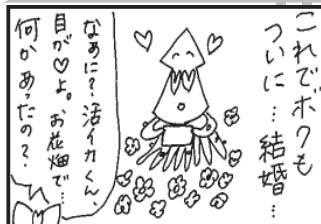 これでボクも
ついに…結婚…
なあに?活イカくん、
目が♡よ。お花畑で…
何かあったの?